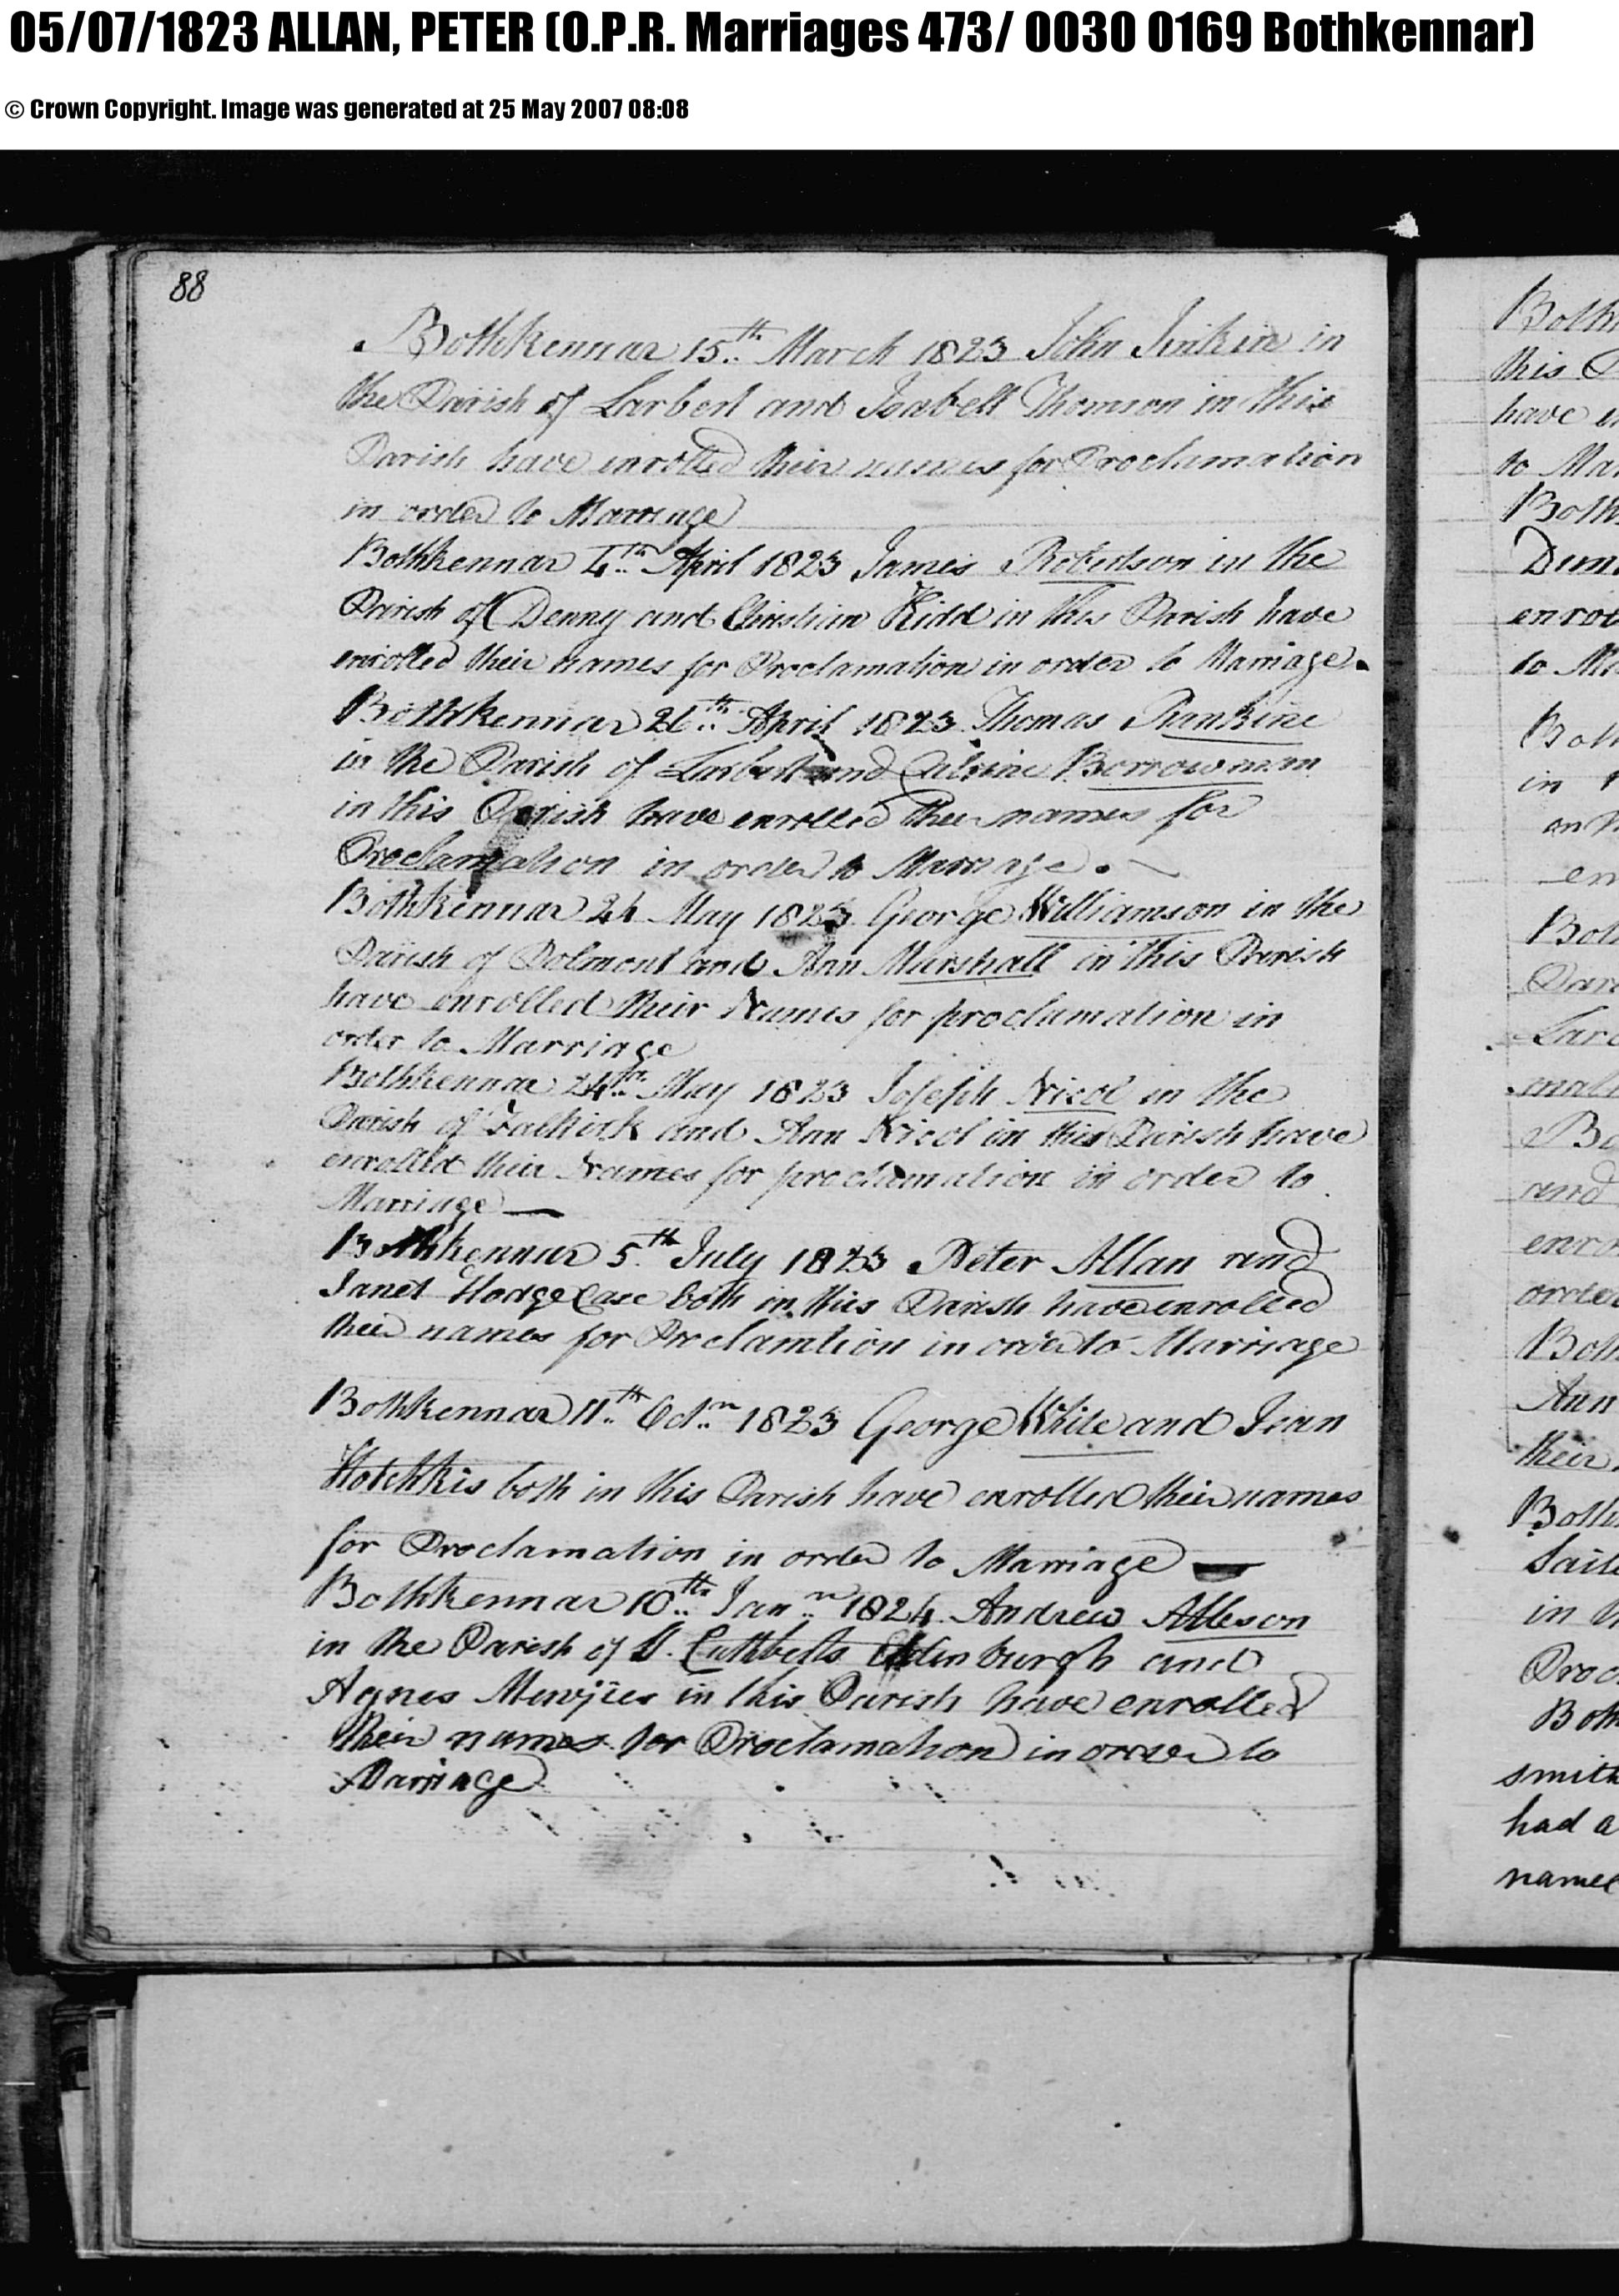 05/07/1823 ALLAN, PETER (O.P.R. Marriages 473/ 0030 0169 Bothkennar)
© Crown Copyright. Image was generated at 25 May 2007 08:08
88
Bothkennar 15th March 1823 John Jinkin in
the Parish of Larbert and Isabell Thomson in this
Parish have enrolled their names for Proclamation
in order to Marriage
Bothkennar 4th April 1823 James Robertson in the
Parish of Denny and Christian Kidd in this Parish have
enrolled their names for Proclamation in order to Marriage.
Bothkennar 26th April 1823 Thomas Rankine
in the Parish of Larbert and Borrowman
in this Parish have enrolled their names for
Proclamation in order to Marriage.
Bothkennar 24 May 1823 George Williamson in the
Parish of Polmont and Ann Marshall in this Parish
have enrolled their Names for proclamation in
order to Marriage
Bothkennar 24th May 1823 Joseph Nicol in the
Parish of Falkirk and Ann Nicol in this Parish have
enrolled their Names for proclamation in order to
Marriage —
Bothkennar 5th July 1823 Peter Allan and
Janet Hodge Case both in this Parish have enrolled
their names for Proclamtion in order to Marriage
Bothkennar 11th Octr 1823 George White and Jean
Hotchkis both in this Parish have enrolled their names
for Proclamation in order to Marriage —
Bothkennar 10th Janr 1824 Andrew Alleson
in the Parish of St. Cuthberts Edinburgh and
Agnes in this Parish have enrolled
their names for Proclamation in order to
Marriage
Both
this P
have e
to Mar
Both
Dun
enrol
to Ma
Both
in
en
Both
Pari
Bo
and
enro
order
Both
Ann
their
Both
in
Proc
Both
smith
had a
name